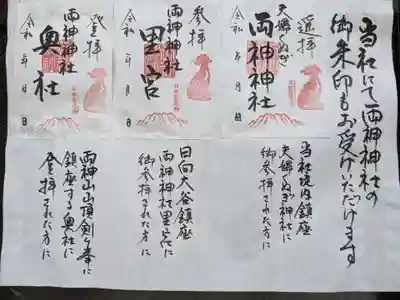 当社にて両神神社の
御朱印もお受けいただけます
遥拝
夫婦ぬぎ
両神神社
令和 年 月 日
当社境内鎮座
夫婦ぬぎ神社に
御参拝された方に
参拝
両神神社
里宮
令和 年 月 日
日向大谷鎮座
両神神社里宮に
御参拝された方に
登拝
両神神社
奥社
令和 年 月 日
両神山山頂剣ヶ峯に
鎮座する奥社に
登拝された方に